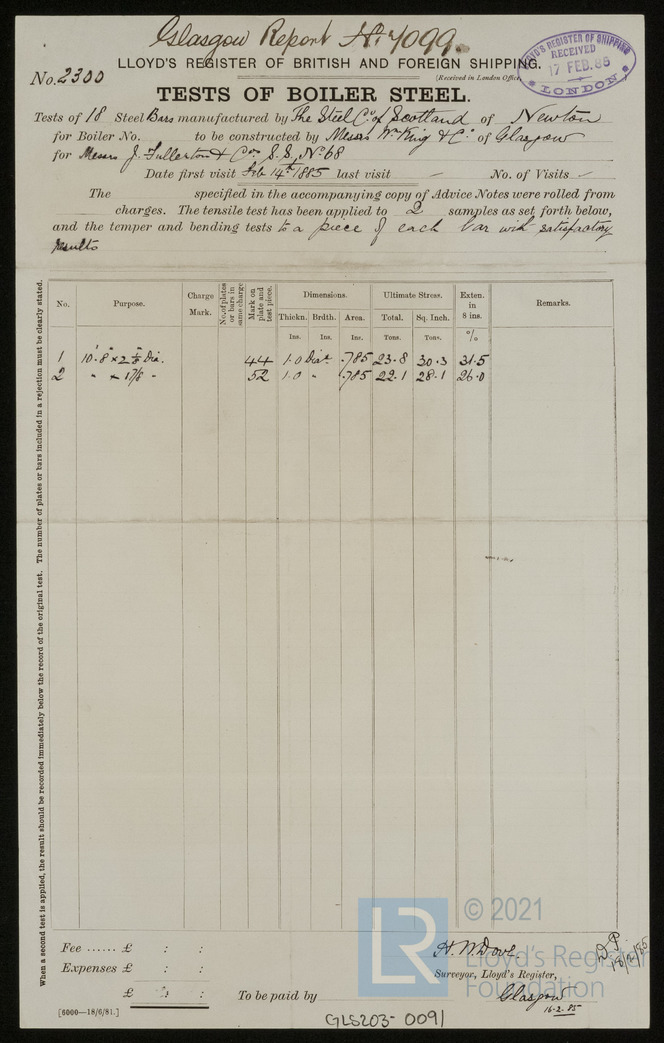 Glasgow Report No. 7099.
LLOYD'S REGISTER OF BRITISH AND FOREIGN SHIPPING.
(Received in London Office
LLOYD'S REGISTER OF SHIPPING
RECEIVED
17 FEB. 85
LONDON
No. 2300
TESTS OF BOILER STEEL.
Tests of 18 Steel Bars manufactured by The Steel Co. of Scotland of Newton
for Boiler No. to be constructed by Messrs Wm King & Co. of Glasgow
for Messrs J. Fullerton & Co. S.S. No. 68
Date first visit Feb 14th 1885 last visit - No. of Visits -
The specified in the accompanying copy of Advice Notes were rolled from
charges. The tensile test has been applied to 2 samples as set forth below,
and the temper and bending tests to a piece of each bar with satisfactory
results
When a second test is applied, the result should be recorded immediately below the record of the original test. The number of plates or bars included in a rejection must be clearly stated.
No. Purpose. Charge Mark. No. of plates or bars in same charge Mark on plate and test piece. Dimensions. Ultimate Stress. Exten. in 8 ins. Remarks.
Thickn. Brdth. Area. Total. Sq. Inch.
Ins. Ins. Ins. Tons. Tons. %
1 10'.8" × 2 1/8" Dia. 44 1.0 Diar. .785 23.8 30.3 31.5
2 " × 1 7/8 " 52 1.0 " .785 22.1 28.1 26.0
LR © 2021
Lloyd's Register
Foundation
Fee ...... £ : :
Expenses £ : :
£ : :
H. W. Dove
Surveyor, Lloyd's Register,
To be paid by
Glasgow
16.2.85
18/2/85
[6000—18/6/81.]
GLS203-0091